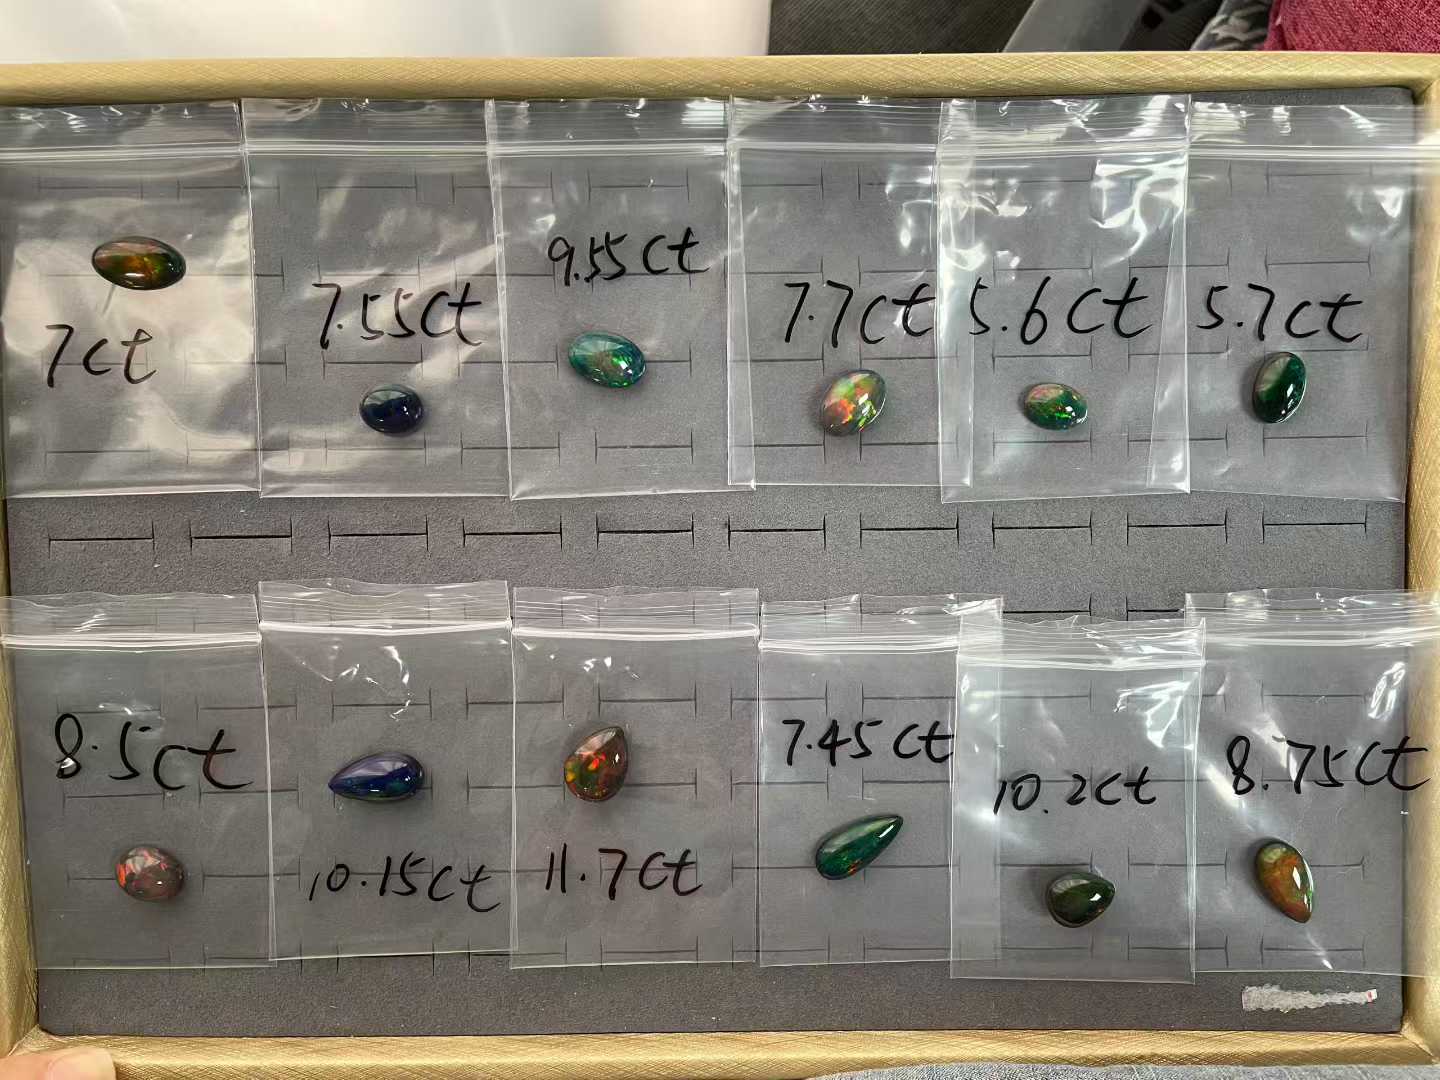 7ct
7.55ct
9.55ct
7.7ct
5.6ct
5.7ct
8.5ct
10.15ct
11.7ct
7.45ct
10.2ct
8.75ct